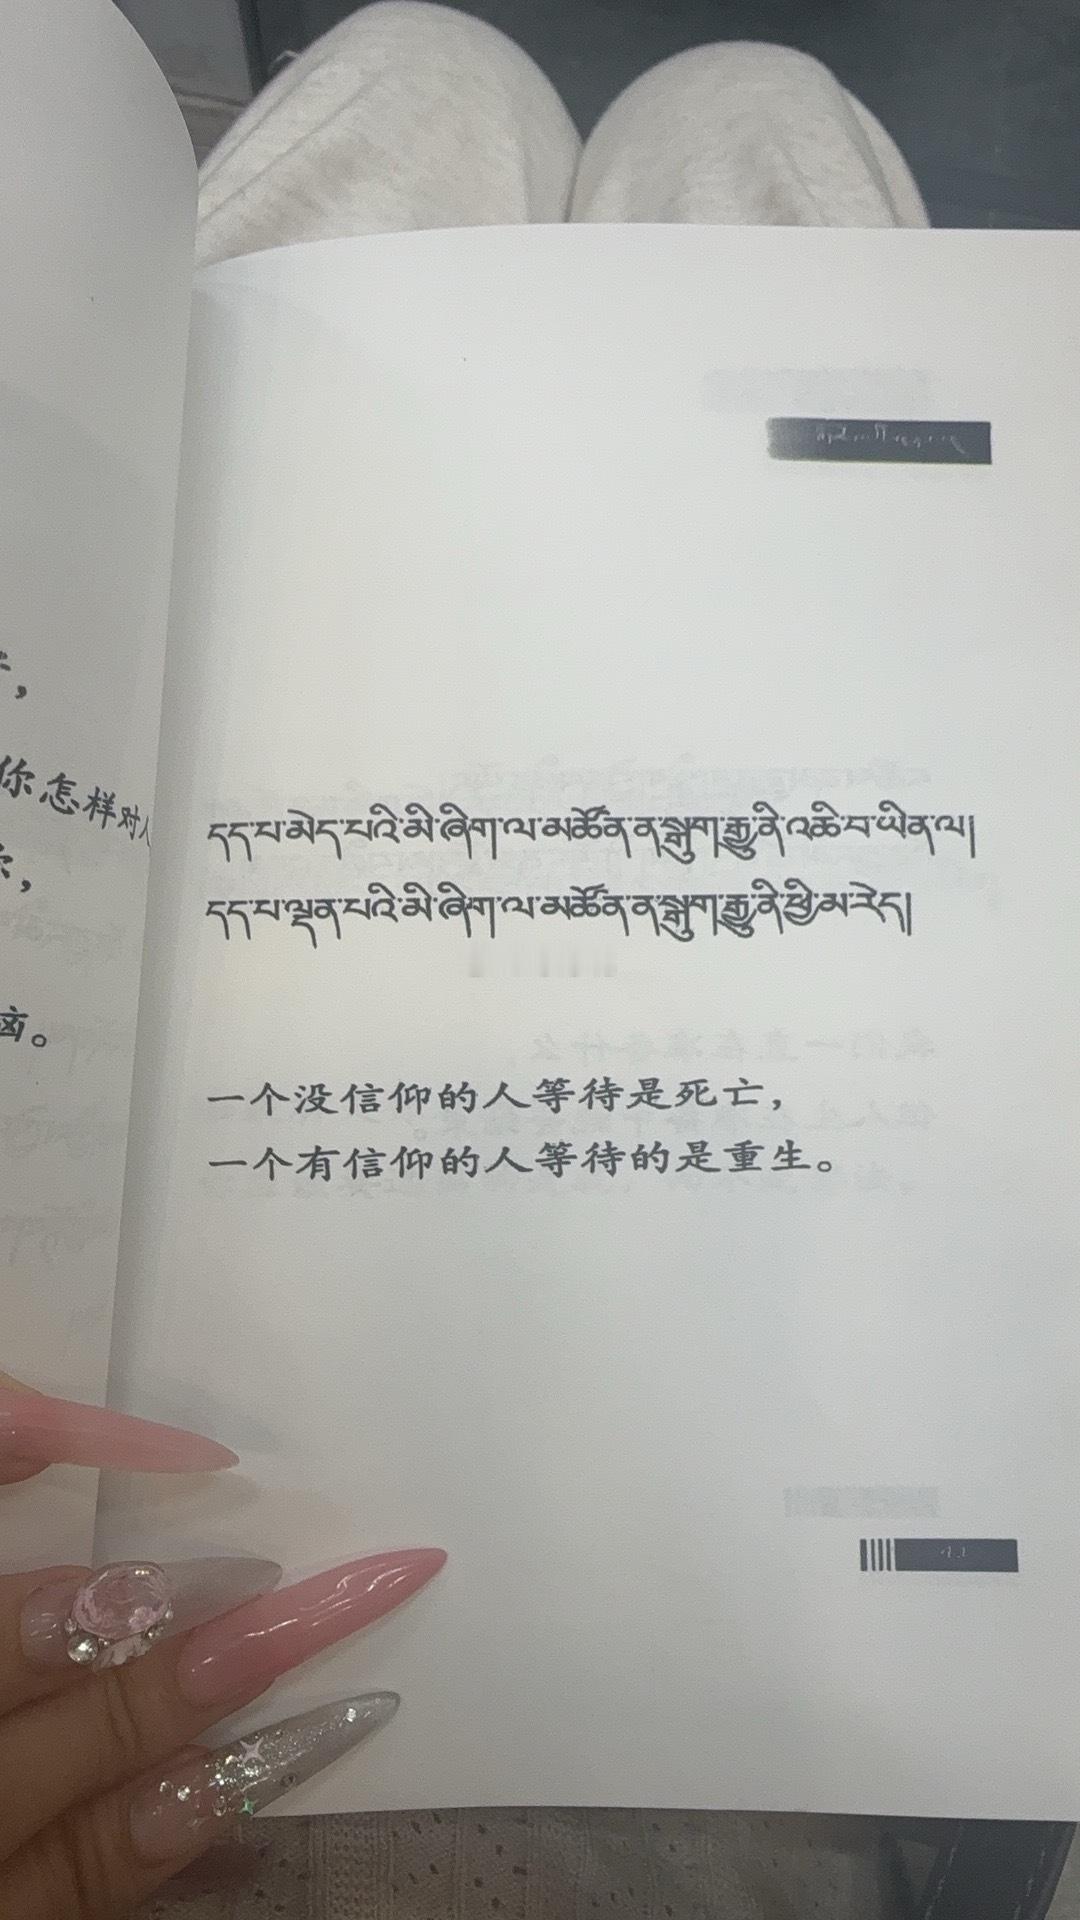 你怎样对人
དད་པ་མེད་པའི་མི་ཞིག་ལ་མཚོན་ན་སྒུག་རྒྱུ་ནི་འཆི་བ་ཡིན་ལ།
དད་པ་ལྡན་པའི་མི་ཞིག་ལ་མཚོན་ན་སྒུག་རྒྱུ་ནི་ཕྱི་མ་རེད།
一个没信仰的人等待是死亡，
一个有信仰的人等待的是重生。